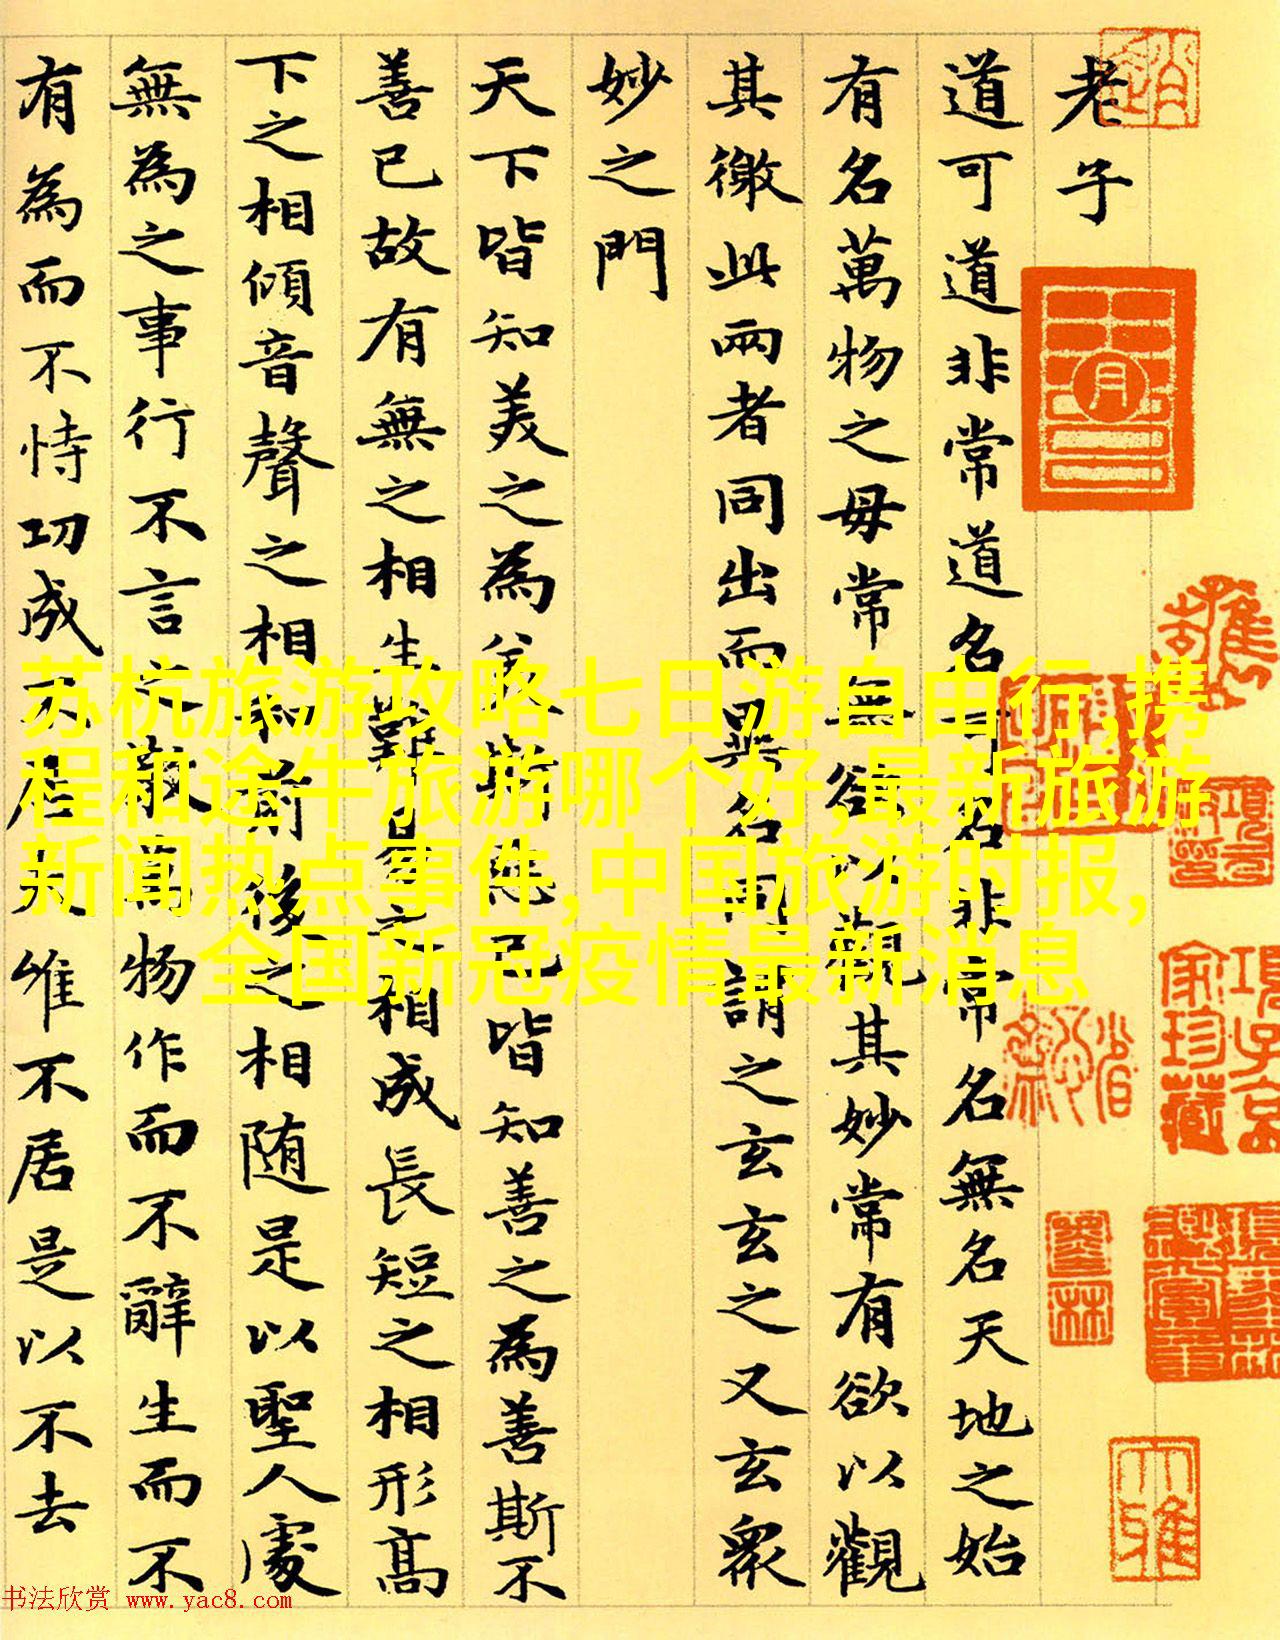 老子
道可道非常道名可名非常名無名天地之始
有名萬物之母常無欲以觀其妙常有欲以觀
其徼此兩者同出而異名同謂之玄玄之又玄眾
妙之門
天下皆知美之為美斯惡已皆知善之為善斯不
善已故有無之相生難易之相成長短之相形高
下之相傾音聲之相和前後之相隨是以聖人處
無為之事行不言之教萬物作而不辭生而不
有為而不恃功成不居夫唯不居是以不去
苏杭旅游攻略七日游自由行,携
程和途牛旅游哪个好,最新旅游
新闻热点事件,中国旅游时报,
全国新冠疫情最新消息
项子京
家珍藏
大雅
书法欣赏 www.yac8.com